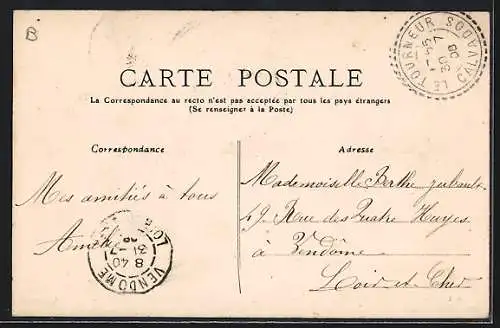 B
LE TOURNEUR CALVADOS
17-25
30 7
08
CARTE POSTALE
La Correspondance au recto n'est pas acceptée par tous les pays étrangers
(Se renseigner à la Poste)
Correspondance
Adresse
Mes amitiés à tous
Mademoiselle Berthe
49 Rue des Quatre Huyes
à Vendôme
Loir et Cher
VENDOME
8 40
31-7
08